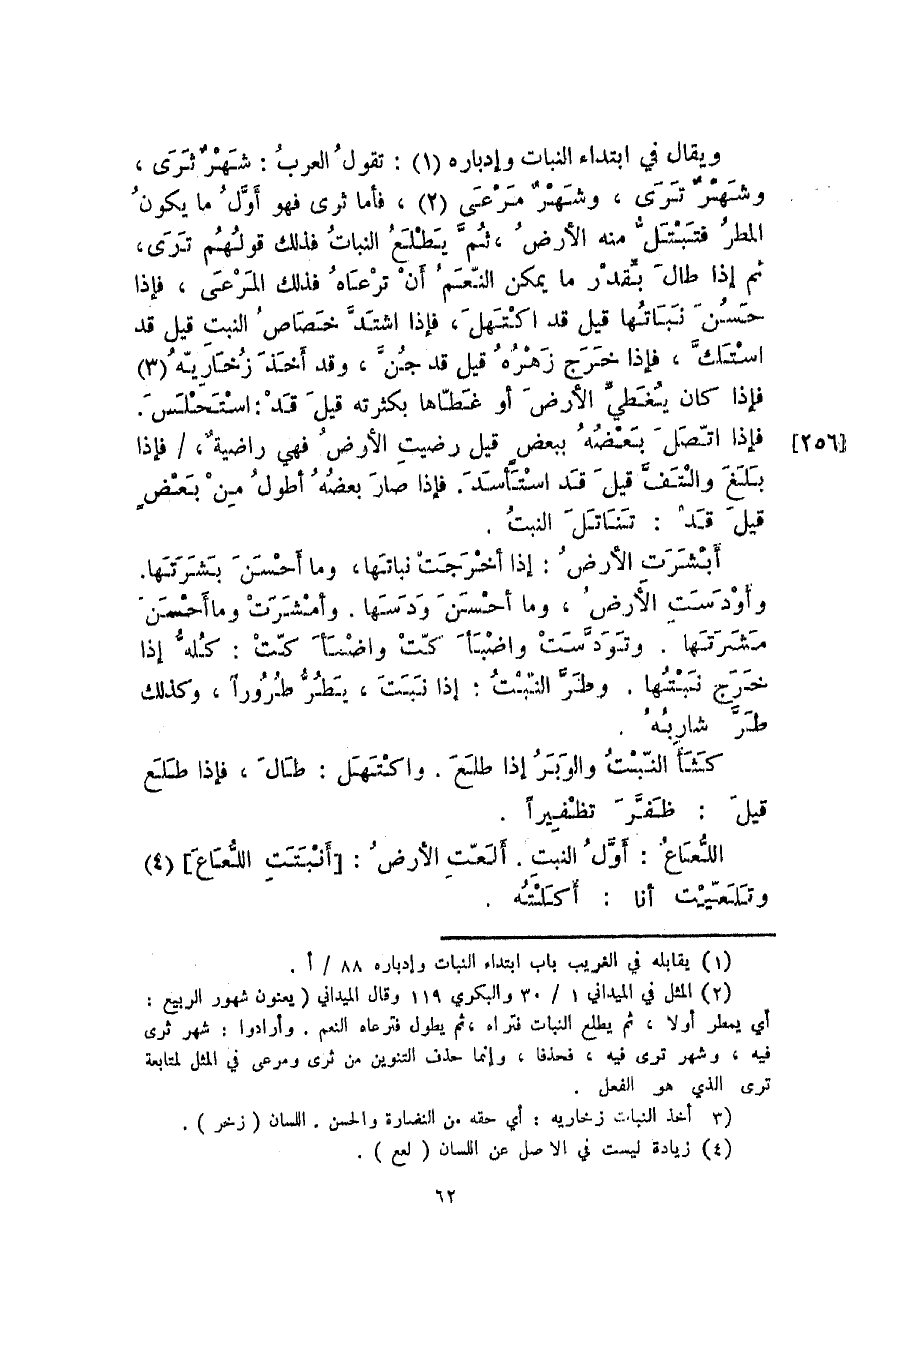 ويقال في ابتداء النبات وإدباره (١) : تقول ُ العربُ : شَهْرٌ ثَرَى ،
وشَهْرٌ تَرَى ، وشَهْرٌ مَرْعَى (٢) ، فأما ثرى فهو أَوَّلُ ما يكونُ
المطرُ فتَبْتَلُّ منه الأرضُ ، ثُمَّ يَطْلَعُ النباتُ فذلك قولُهُم تَرَى ،
ثم إذا طالَ بقَدْر ما يمكن النّعَمُ أنْ ترْعَاهُ فذلك المَرْعَى ، فإذا
حَسُنَ نَبَاتُها قيل قد اكْتَهلَ ، فإذا اشتَدَّ خَصَاصُ النبتِ قيل قد
اسْتَكَّ ، فإذا خَرَج زَهْرُهُ قيل قد جُنَّ ، وقد أخَذَ زُخَارِيّهُ (٣)
فإذا كان يُغَطيِّ الأرضَ أو غَطّاها بكثرته قيلَ قَدْ : اسْتَحْلَسَ .
[٢٥٦] فإذا اتّصَلَ بَعْضُهُ ببعضٍ قيل رضيتِ الأرضُ فهي راضيةٌ ، / فإذا
بَلَغَ والْتَفَّ قيلَ قَد اسْتَأسَدَ . فإذا صارَ بعضُهُ أطولُ مِنْ بَعْضٍ
قيلَ قَدْ : تَنَاتَلَ النبتُ .
أبْشَرَتِ الأرضُ : إذا أخْرَجَتْ نباتَها ، وما أحْسَنَ بَشَرَتَها .
وأوْدَسَتِ الأرضُ ، وما أحْسَنَ وَدَسَها . وأمْشَرَتْ وما أحْسَنَ
مَشَرَتَها . وتَوَدَّسَتْ واضْبَأَكَّتْ واضْمَأَكَّتْ : كُلهُّ إذا
خَرَج نَبْتُها . وطَرَّ النّبْتُ : إذا نَبَتَ ، يَطُرُّ طُرُوراً ، وكذلك
طَرَّ شاربُهُ .
كَثَأَ النّبْتُ والوَبَرُ إذا طلَعَ . واكْتَهَل : طَالَ ، فإذا طَلَع
قيلَ : ظَفَّرَ تظْفِيراً .
اللُّعَاعُ : أَوَّلُ النبتِ . أَلَعّتِ الأرضُ : [أَنْبَتَتِ اللُّعَاعَ] (٤)
وتَلَعّيْت أنا : أَكَلْتُه .
(١) يقابله في الغريب باب ابتداء النبات وإدباره ٨٨ / أ .
(٢) المثل في الميداني ١ / ٣٠ والبكري ١١٩ وقال الميداني ( يعنون شهور الربيع :
أي يمطر أولا ، ثم يطلع النبات فتراه ، ثم يطول فترعاه النعم . وأرادوا : شهر ثرى
فيه ، وشهر ترى فيه ، فحذفا ، وإنما حذف التنوين من ثرى ومرعى في المثل لمتابعة
ترى الذي هو الفعل .
٣) أخذ النبات زخاريه : أي حقه من النضارة والحسن . اللسان ( زخر ) .
(٤) زيادة ليست في الاصل عن اللسان ( لعع ) .
٦٢